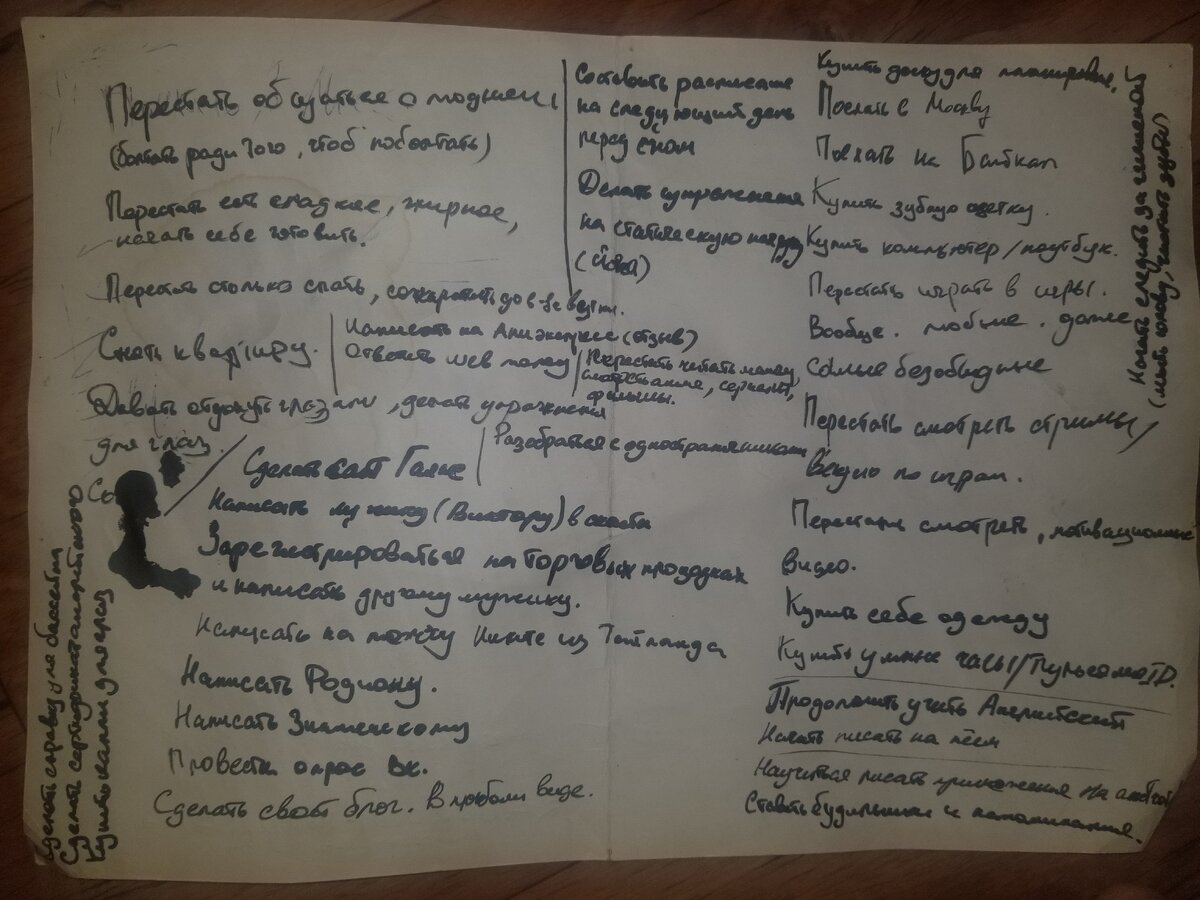 Перестать общаться о
(болтать ради того, чтоб поболтать)
Перестать есть сладкое, жирное,
начать себе готовить.
Перестать столько спать, сократить до
Снять квартиру.
Давать отдохнуть глазам, делать упражнения
для глаз.
Составить расписание
на следующий день
перед сном
Делать упражнения
на статическую
(йога)
Написать на Алиэкспресс (отзыв)
Ответить
Перестать читать мангу,
смотреть аниме, сериалы,
фильмы.
Разобраться с одностраничниками
Сделать сайт
Написать мужику (Виктору) в
Зарегистрироваться на торговых площадках
и написать другому мужику.
Написать на почту Никите из Таиланда
Написать Родиону.
Написать Знаменскому
Провести опрос Вк.
Сделать свой блог. В любом виде.
Сделать справку для бассейна
Сделать сертификат
Купить капли для глаз
Купить доску для планировки.
Поехать в Москву
Поехать на Байкал
Купить зубную щетку.
Купить компьютер/ноутбук.
Перестать играть в игры.
Вообще. любые. даже
самые безобидные
Перестать смотреть стримы/
видео по играм.
Перестать смотреть мотивационные
видео.
Купить себе одежду
Купить умные часы/Пульсометр.
Продолжить учить Английский
Начать писать на нём
Научиться писать приложения на
Ставить будильники и напоминания.
Начать следить за гигиеной
(мыть голову, чистить зубы)